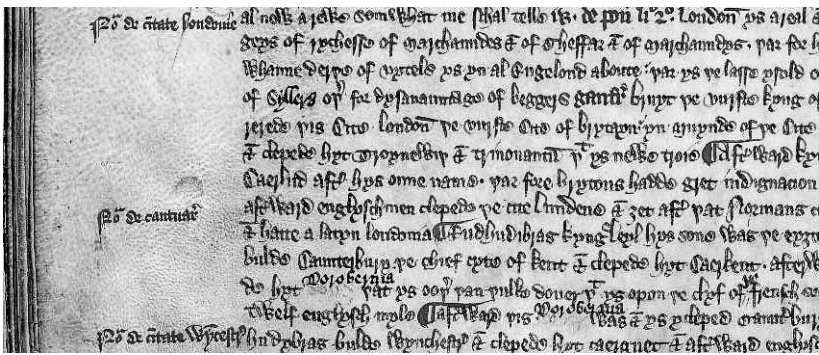 No de ciuitate londonie
al newe a rewe somwhat me schal telle w. de pon li 2o. London ys a real
geys of rychesse of marchaundes & of cheffar & of marchaundys. þar for
whanne derþe of vytels ys yn al Engelond aboute: þar ys þe lasse ysold
of syllers oþr for dysauauntage of beggers gaufr bruyt þe vurste kyng
rerede þis Cite london þe vurste Cite of brytayn yn mynde of þe Cite
& clepede hyt Troynewiþ & trinouantū þt ys newe troie ¶ Aftward
Caerlud aft hys oune name. þar fore brytons hadde gret indignacion
No de cantuar
aftward englyschmen clepede þe cite lundene & ȝet aft þat Normans
& hatte a latyn londonia ¶ Rudhudibras kyng leyl hys sone was þe eyȝte
bulde Caunterbury þe chief cyte of kent & clepede hyt Caerkent.
de hyt Dorobernia þat ys ooþr þan þulke douer þt ys opon þe clyf of frensch
twelf englysch myle ¶ Aftward þis Dorobernia was & ys ycleped
No de ciuitate Wyncestr
hudybras bulde Wynchestr & clepede hyt caerguet & aftward